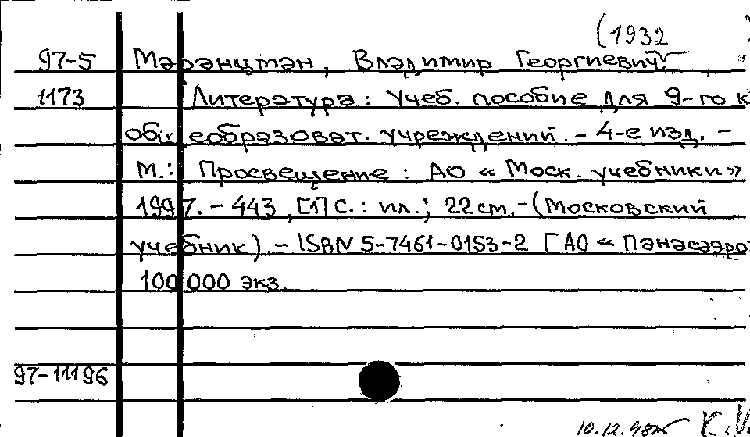 (1932
97-5 Маранцман, Владимир Георгиевич.
1173 Литература : Учеб. пособие для 9-го к
общеобразоват. учреждений. - 4-е изд. -
М. : Просвещение : АО « Моск. учебники»
1997. - 443, [1] с. : ил. ; 22 см. - (Московский
учебник) - ISBN 5-7461-0153-2 [АО «
100 000 экз.
97-11196
10.12.98